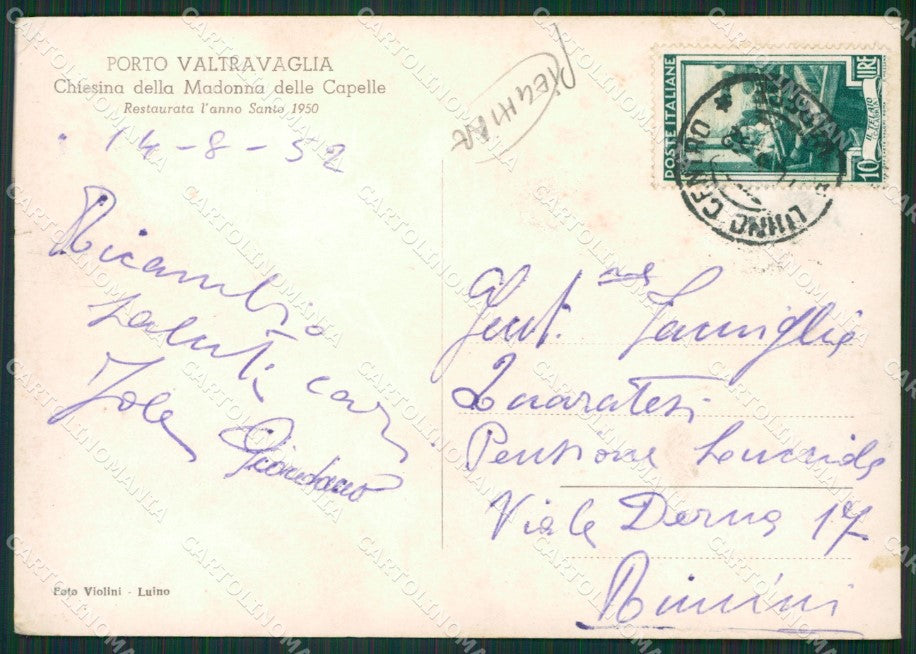 PORTO VALTRAVAGLIA
Chiesina della Madonna delle Capelle
Restaurata l'anno Santo 1950
14-8-52
Ricambio
saluti cari
Jole
Giordano
Foto Violini - Luino
POSTE ITALIANE
LIRE
10
IL TELAIO
LUINO CENTRO
Gent. Famiglia
Quaratesi
Pensione
Viale Derna 17
Rimini
CARTOLINOMANIA